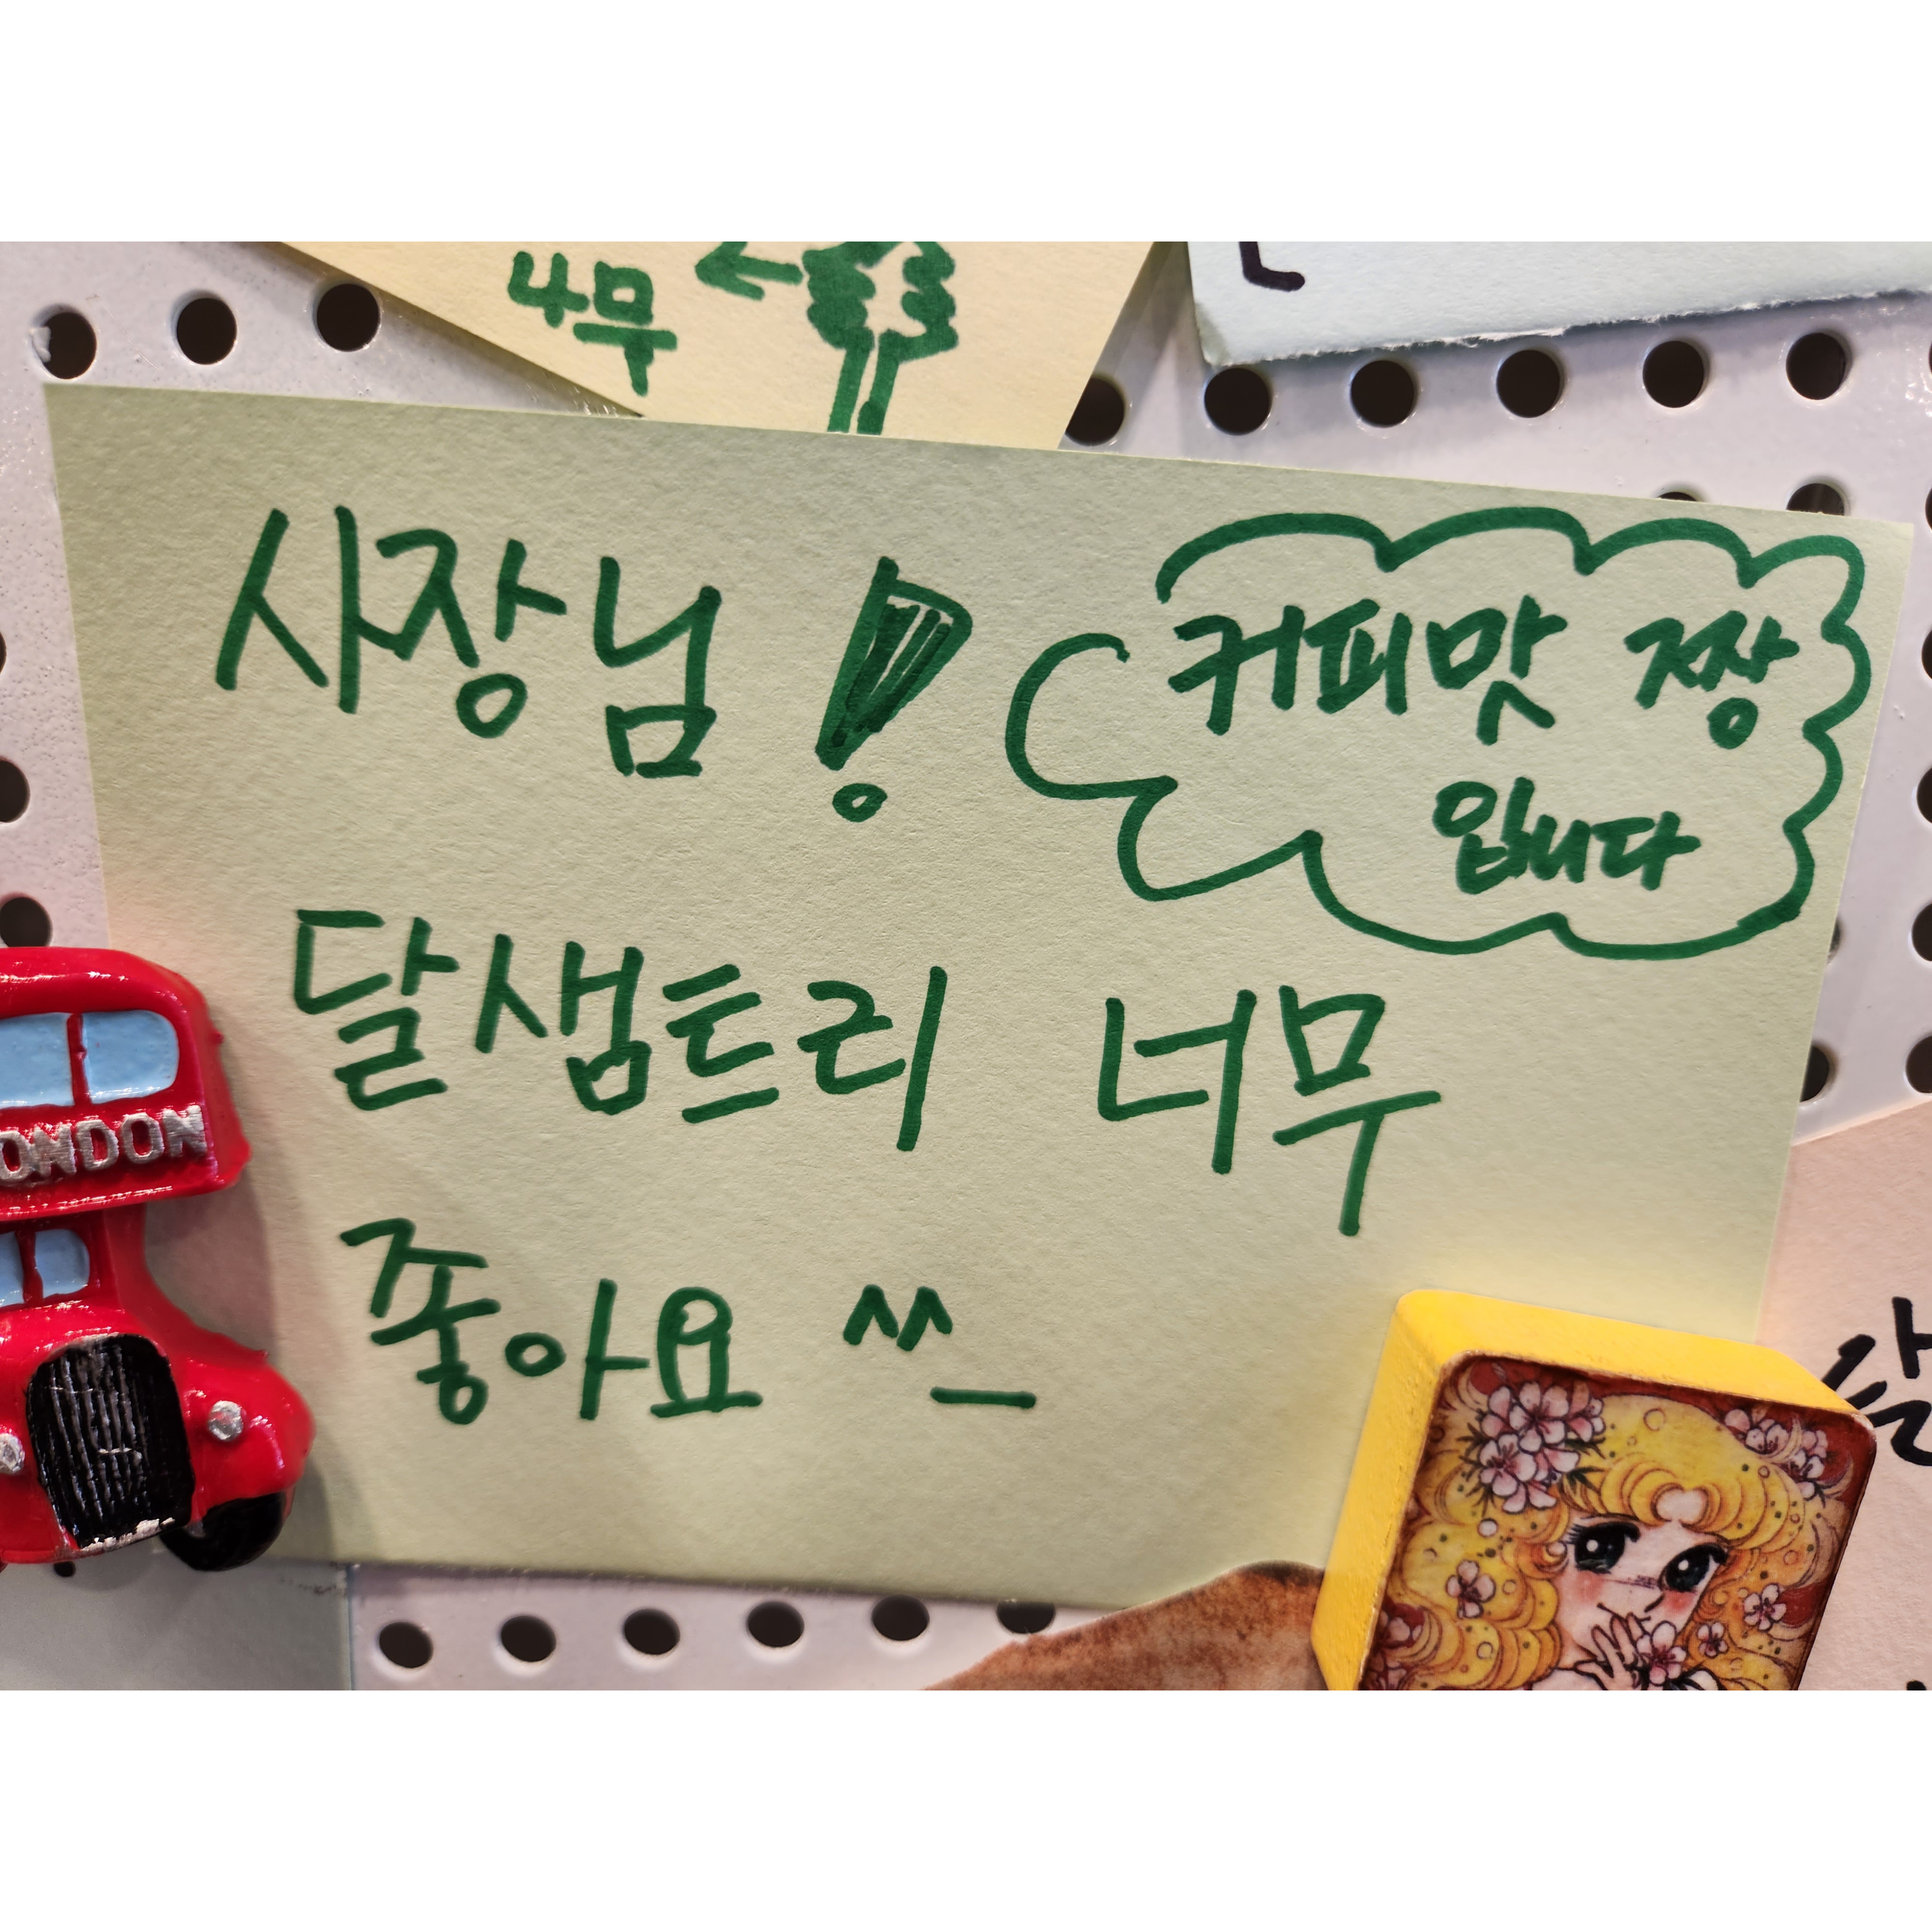 나무
사장님!
커피맛 짱
입니다
달샘트리 너무
좋아요 ^^_
ONDON